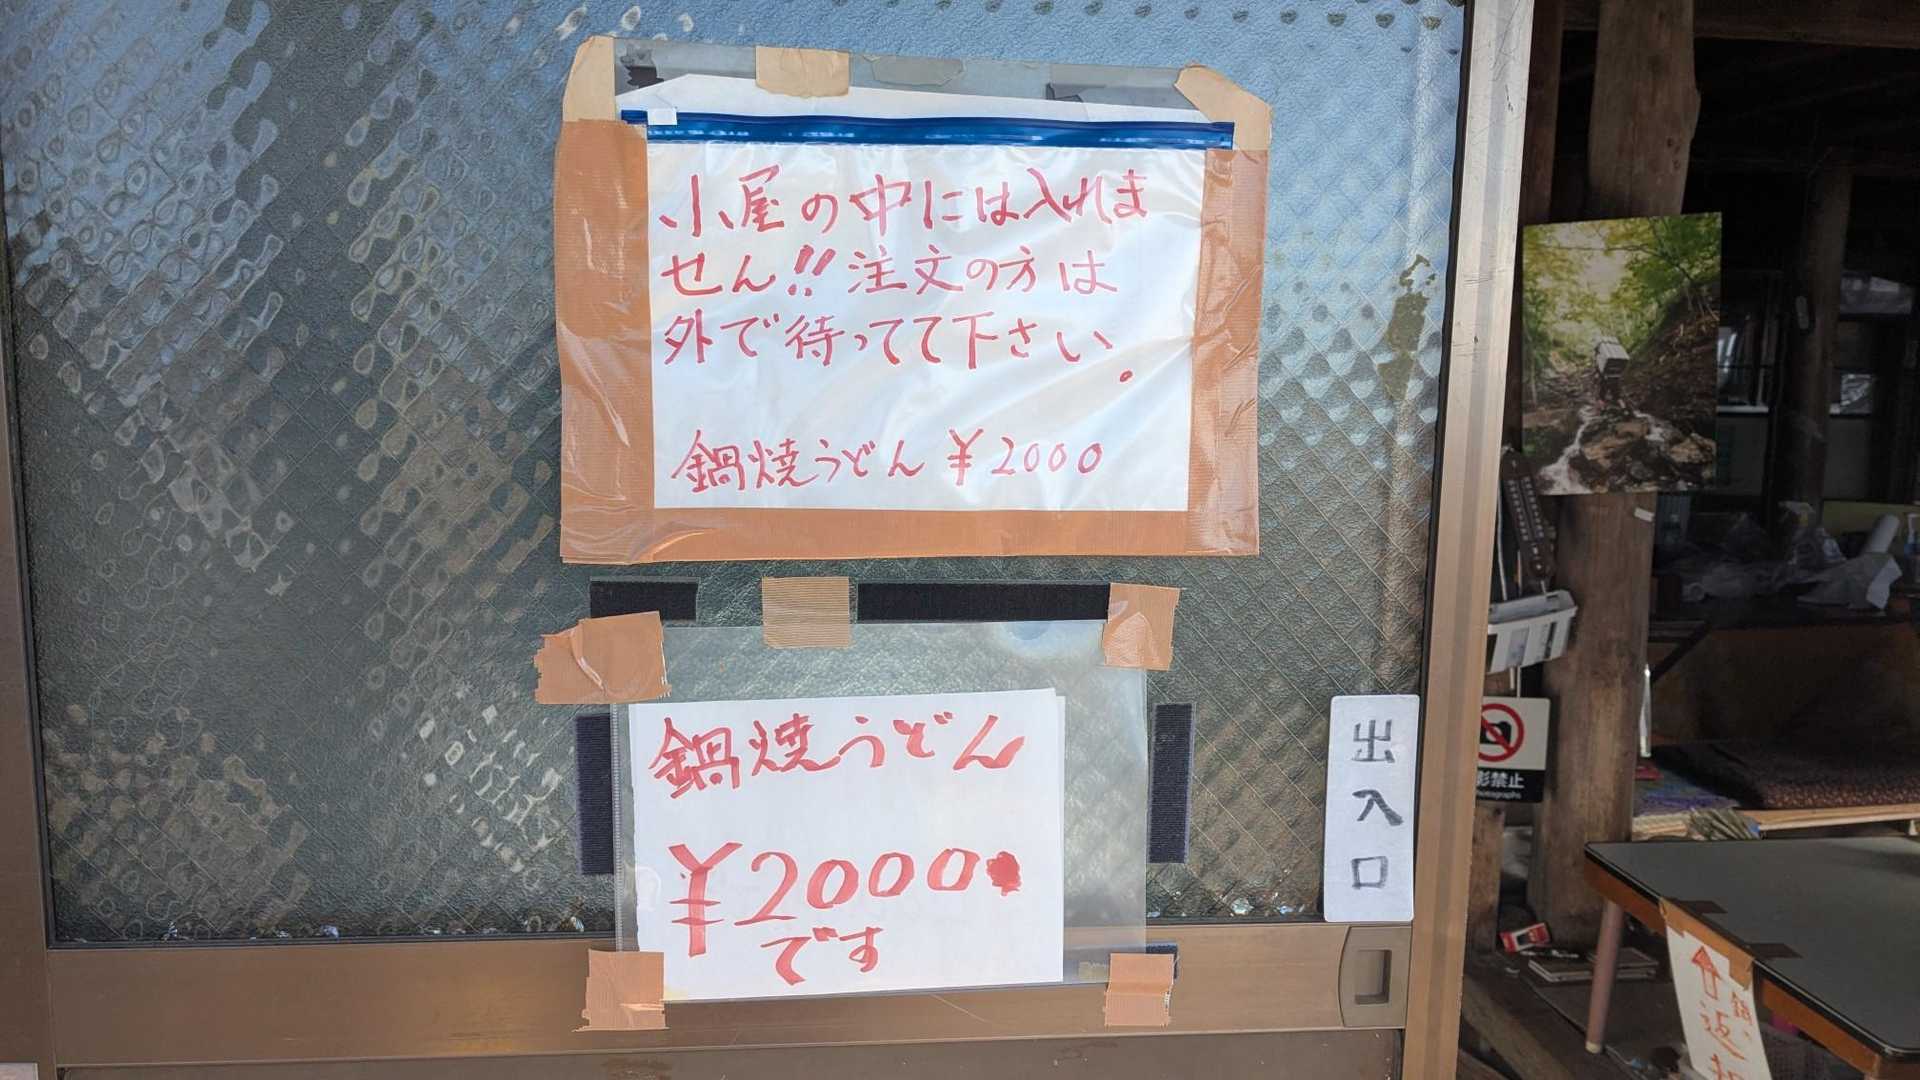 小屋の中には入れま
せん!!注文の方は
外で待ってて下さい。
鍋焼うどん ¥2000
鍋焼うどん
¥2000
です
出入口
影禁止
返